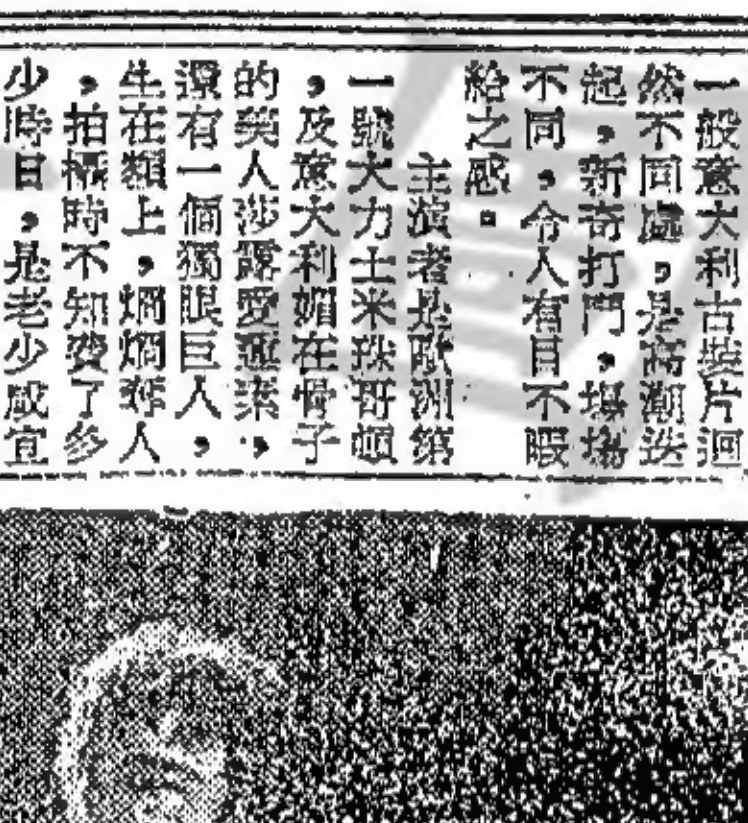 一般意大利古裝片迥
然不同處，是高潮迭
起，新奇打鬥，塲塲
不同，令人有目不暇
給之感。
主演者是歐洲第
一號大力士米珠哥頓
，及意大利媚在骨子
的美人莎露愛素，
還有一個獨眼巨人，
生在額上，烱烱人
，拍攝時不知費了多
少時日，是老少咸宜